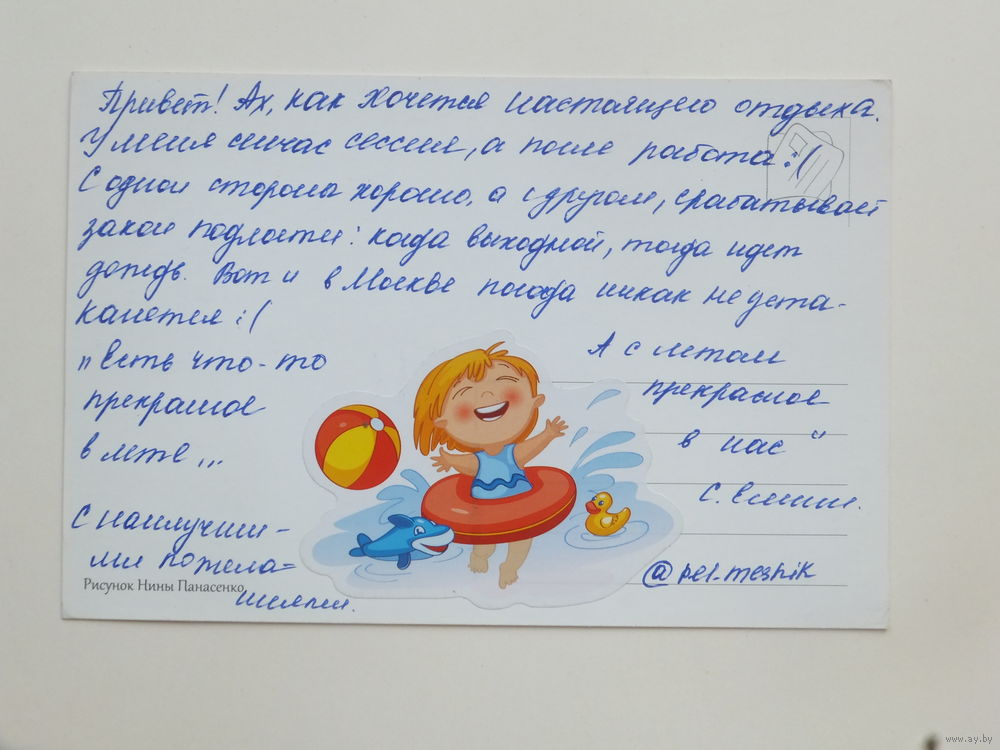 Привет! Ах, как хочется настоящего отдыха.
У меня сичас сессия, а после работа :(
С одной сторона хорошо, а с другой, срабатывает
закон подлости: когда выходной, тогда идет
дождь. Вот и в Москве погода никак не уста-
канется :(
"Есть что-то
прекрасное
в лете...
А с летом
прекрасное
в нас"
С. Есенин.
С наилучши-
ми пожела-
ниями.
@pel-meshik
Рисунок Нины Панасенко
www.ay.by